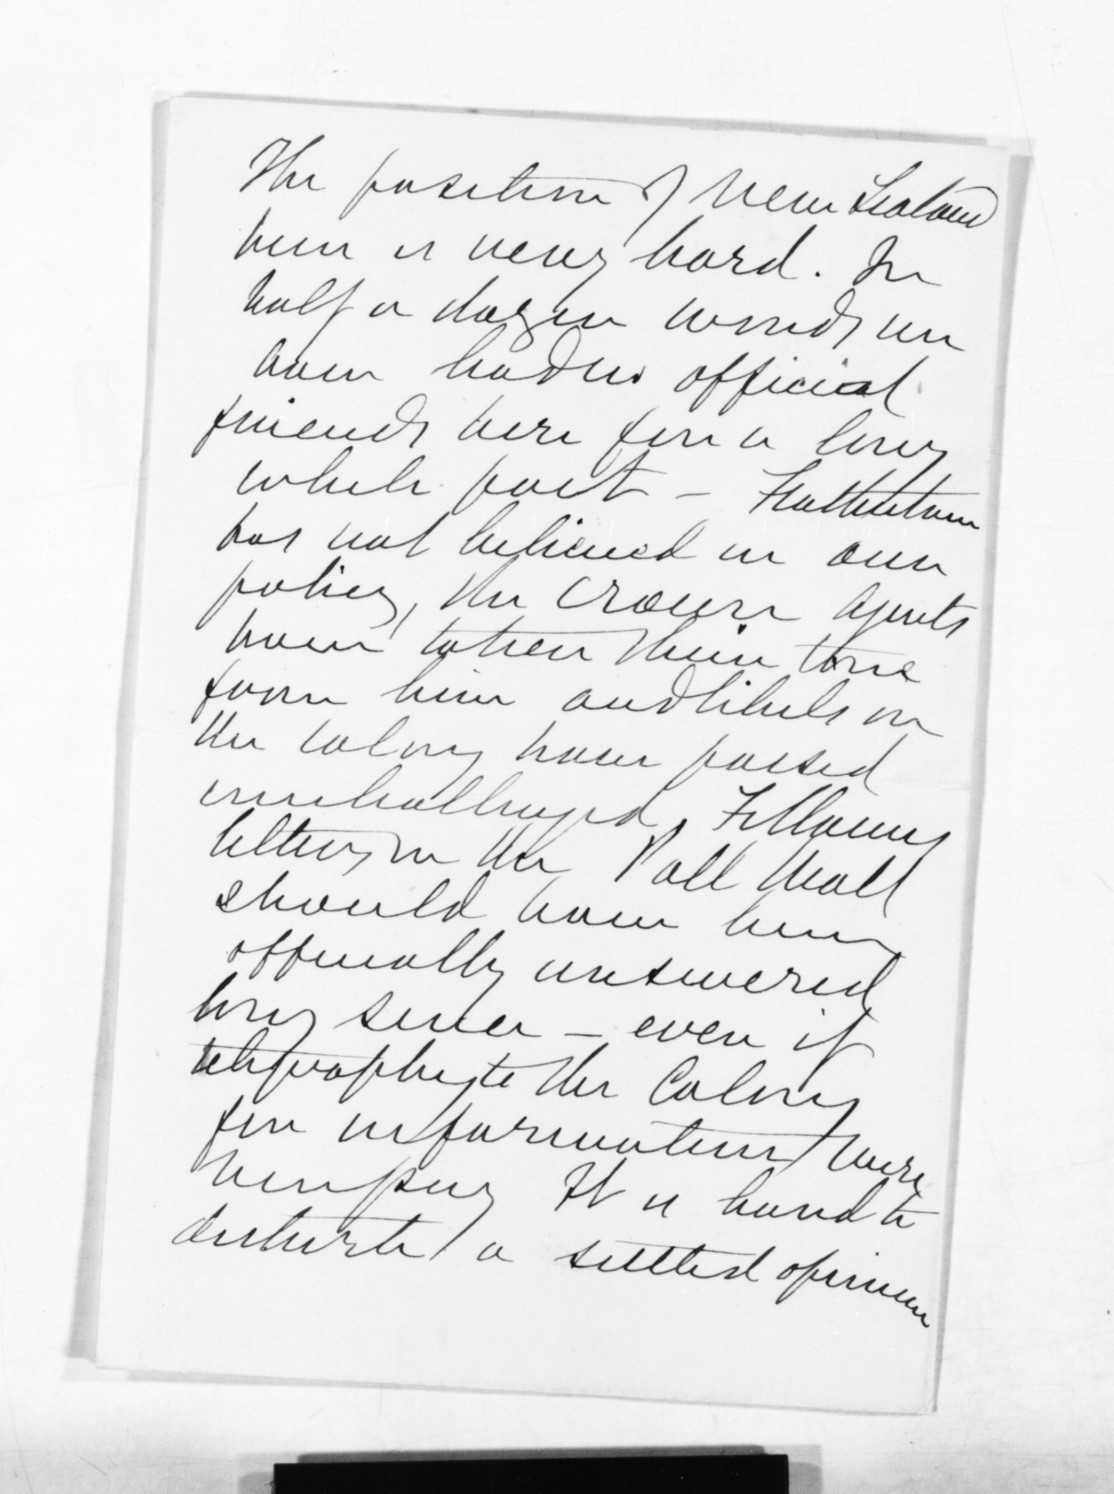 The position of New Zealand
here is very hard. In
half a dozen words we
have had no official
friends here for a long
while past - Featherston
has not believed in our
policy, the Crown Agents
have taken their tone
from him and libels on
the colony have passed
unchallenged, Fellowes
letters in the Pall Mall
should have been
officially answered
long since - even if
telegraphy to the Colony
for information were
It is hard to
a settled opinion